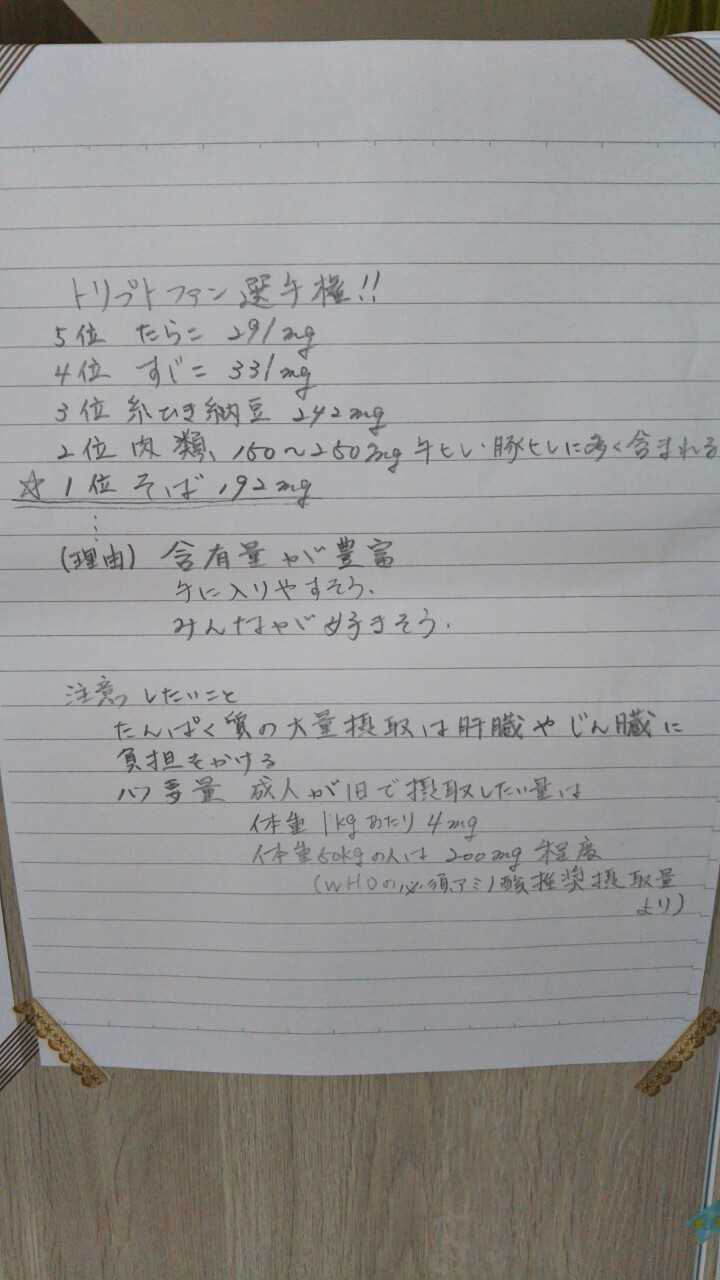 トリプトファン選手権!!
5位 たらこ 291mg
4位 すじこ 331mg
3位 糸ひき納豆 242mg
2位 肉類、150〜250mg 牛ヒレ・豚ヒレに多く含まれる
☆1位 そば 192mg
(理由) 含有量が豊富
手に入りやすそう.
みんなが好きそう.
注意したいこと
たんぱく質の大量摂取は肝臓やじん臓に
負担をかける
必要量 成人が1日で摂取したい量は
体重1kgあたり4mg
体重50kgの人は200mg程度
(WHOの必須アミノ酸推奨摂取量
より)